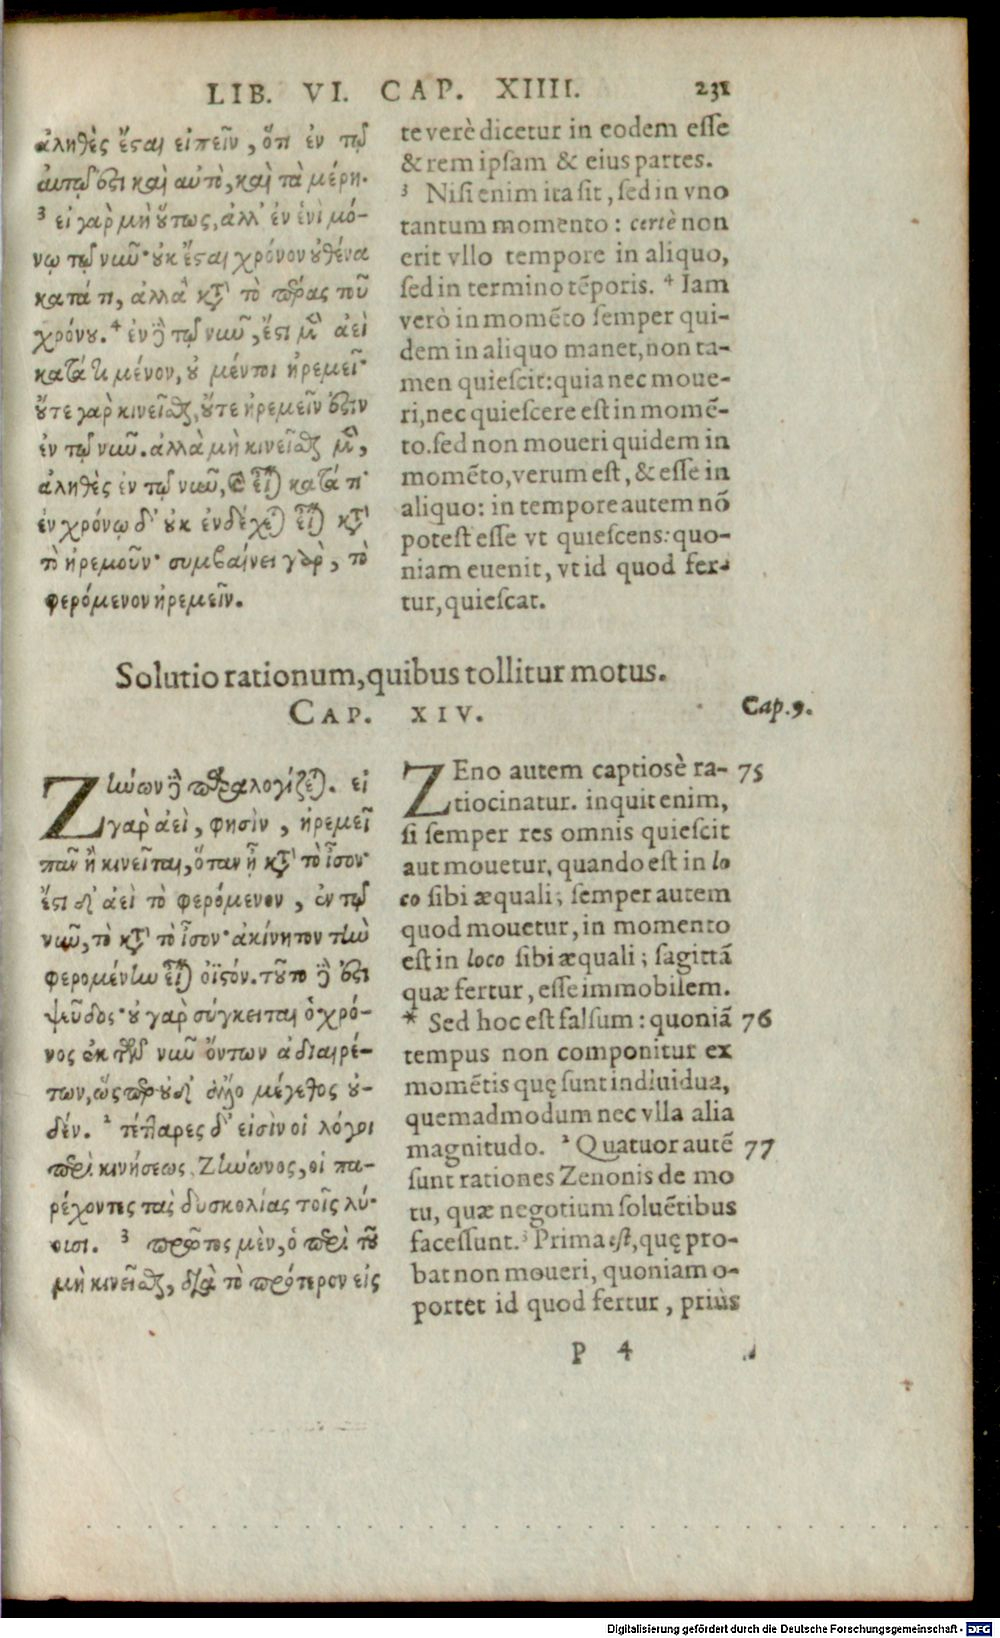 LIB. VI. CAP. XIIII. 231
ἀληθὲς ἔςαι εἰπεῖν, ὅτι ἐν τῷ
αὐτῷ ὅςι καὶ αὐτὸ, καὶ τὰ μέρη.
3 εἰ γὰρ μὴ οὕτως, ἀλλ' ἐν ἑνὶ μό-
νῳ τῷ νιῦ· οὐκ ἔςαι χρόνον οὐθένα
κατά τι, ἀλλὰ κτ' τὸ πέρας τοῦ
χρόνου. 4 ἐν ὃ τῷ νιῦ, ἔςι μὲν ἀεὶ
κατά τι μένον, οὐ μέντοι ἠρεμεῖ·
οὔτε γὰρ κινεῖσθαι, οὔτε ἠρεμεῖν ὅςιν
ἐν τῷ νιῦ. ἀλλὰ μὴ κινεῖσθαι μὲν,
ἀληθὲς ἐν τῷ νιῦ, καὶ εἶναι κατά τι·
ἐν χρόνῳ δ' οὐκ ἐνδέχεται εἶναι κτ'
τὸ ἠρεμοῦν· συμβαίνει γὰρ, τὸ
φερόμενον ἠρεμεῖν.
te verè dicetur in eodem esse
& rem ipsam & eius partes.
3 Nisi enim ita sit, sed in vno
tantum momento: certè non
erit vllo tempore in aliquo,
sed in termino tẽporis. 4 Iam
verò in momẽto semper qui-
dem in aliquo manet, non ta-
men quiescit: quia nec moue-
ri, nec quiescere est in momẽ-
to. sed non moueri quidem in
momẽto, verum est, & esse in
aliquo: in tempore autem nõ
potest esse vt quiescens: quo-
niam euenit, vt id quod fer-
tur, quiescat.
Solutio rationum, quibus tollitur motus.
CAP. XIV. Cap. 9.
Ζήνων δὲ παραλογίζεται. εἰ
γὰρ ἀεὶ, φησὶν, ἠρεμεῖ
πᾶν ἢ κινεῖται, ὅταν ᾖ κτ' τὸ ἶσον·
ἔςι δ' ἀεὶ τὸ φερόμενον, ἐν τῷ
νιῦ, τὸ κτ' τὸ ἶσον· ἀκίνητον τὴν
φερομένην εἶναι ὀϊςόν. τοῦτο δὲ ὅςι
ψεῦδος· οὐ γὰρ σύγκειται ὁ χρό-
νος ἐκ τῶν νιῦ ὄντων ἀδιαιρέ-
των, ὥσπερ οὐδ' ἄλλο μέγεθος οὐ-
δέν. 2 τέτταρες δ' εἰσὶν οἱ λόγοι
περὶ κινήσεως Ζήνωνος, οἱ πα-
ρέχοντες τὰς δυσκολίας τοῖς λύ-
ουσι. 3 πρῶτος μὲν, ὁ περὶ τοῦ
μὴ κινεῖσθαι, διὰ τὸ πρότερον εἰς
ZEno autem captiosè ra- 75
tiocinatur. inquit enim,
si semper res omnis quiescit
aut mouetur, quando est in lo
co sibi æquali; semper autem
quod mouetur, in momento
est in loco sibi æquali; sagittã
quæ fertur, esse immobilem.
* Sed hoc est falsum: quoniã 76
tempus non componitur ex
momẽtis quę sunt indiuidua,
quemadmodum nec vlla alia
magnitudo. 2 Quatuor autẽ 77
sunt rationes Zenonis de mo
tu, quæ negotium soluẽtibus
facessunt. 3 Prima est, quę pro-
bat non moueri, quoniam o-
portet id quod fertur, priùs
P 4
Digitalisierung gefördert durch die Deutsche Forschungsgemeinschaft - DFG